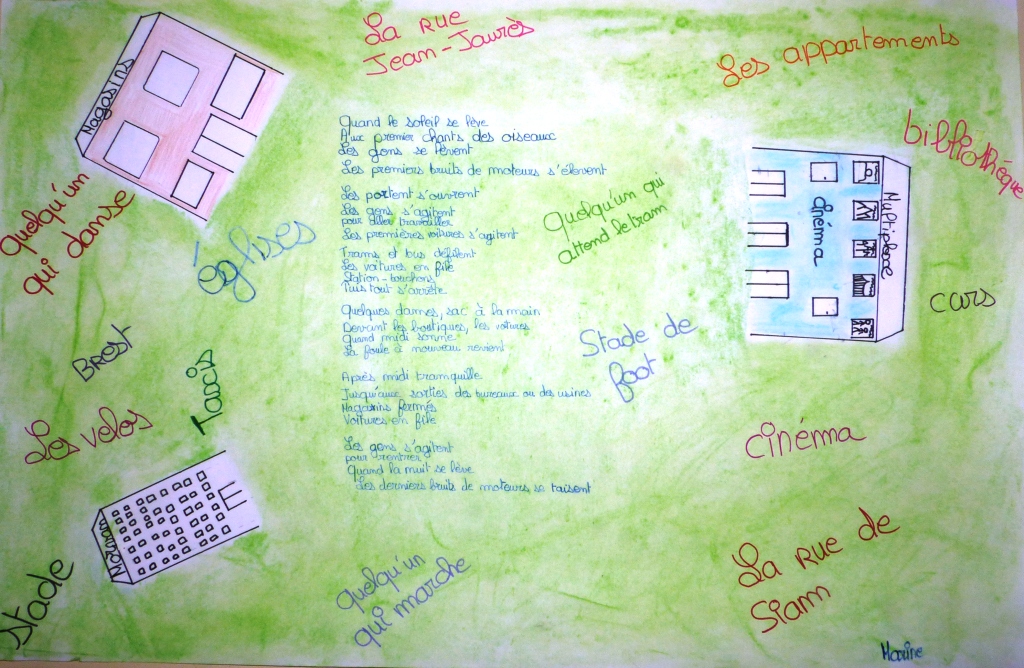 La rue
Jean-Jaurès
Les appartements
Magasins
bibliothèque
Quand le soleil se lève
Aux premier chants des oiseaux
Les gens se lèvent
Les premiers bruits de moteurs s'élèvent
Les portent s'ouvrent
Les gens s'agitent
pour aller travailler
Les premières voitures s'agitent
Trams et bus défilent
Les voitures en file
Station-bouchons
Puis tout s'arrête
Quelques dames, sac à la main
Devant les boutiques, les voitures
Quand midi sonne
La foule à nouveau revient
Après midi tramquille
Jusqu'aux sorties des bureaux ou des usines
Magasins fermés
Voitures en file
Les gens s'agitent
pour rentrer
Quand la nuit se lève
Les derniers bruits de moteurs se taisent
Quelqu'un
qui danse
églises
Quelqu'un qui
attend le tram
Multiplexe
Cinéma
cars
Brest
Taxis
Stade de
foot
Les velos
cinéma
Stade
quelqu'un
qui marche
La rue de
Siam